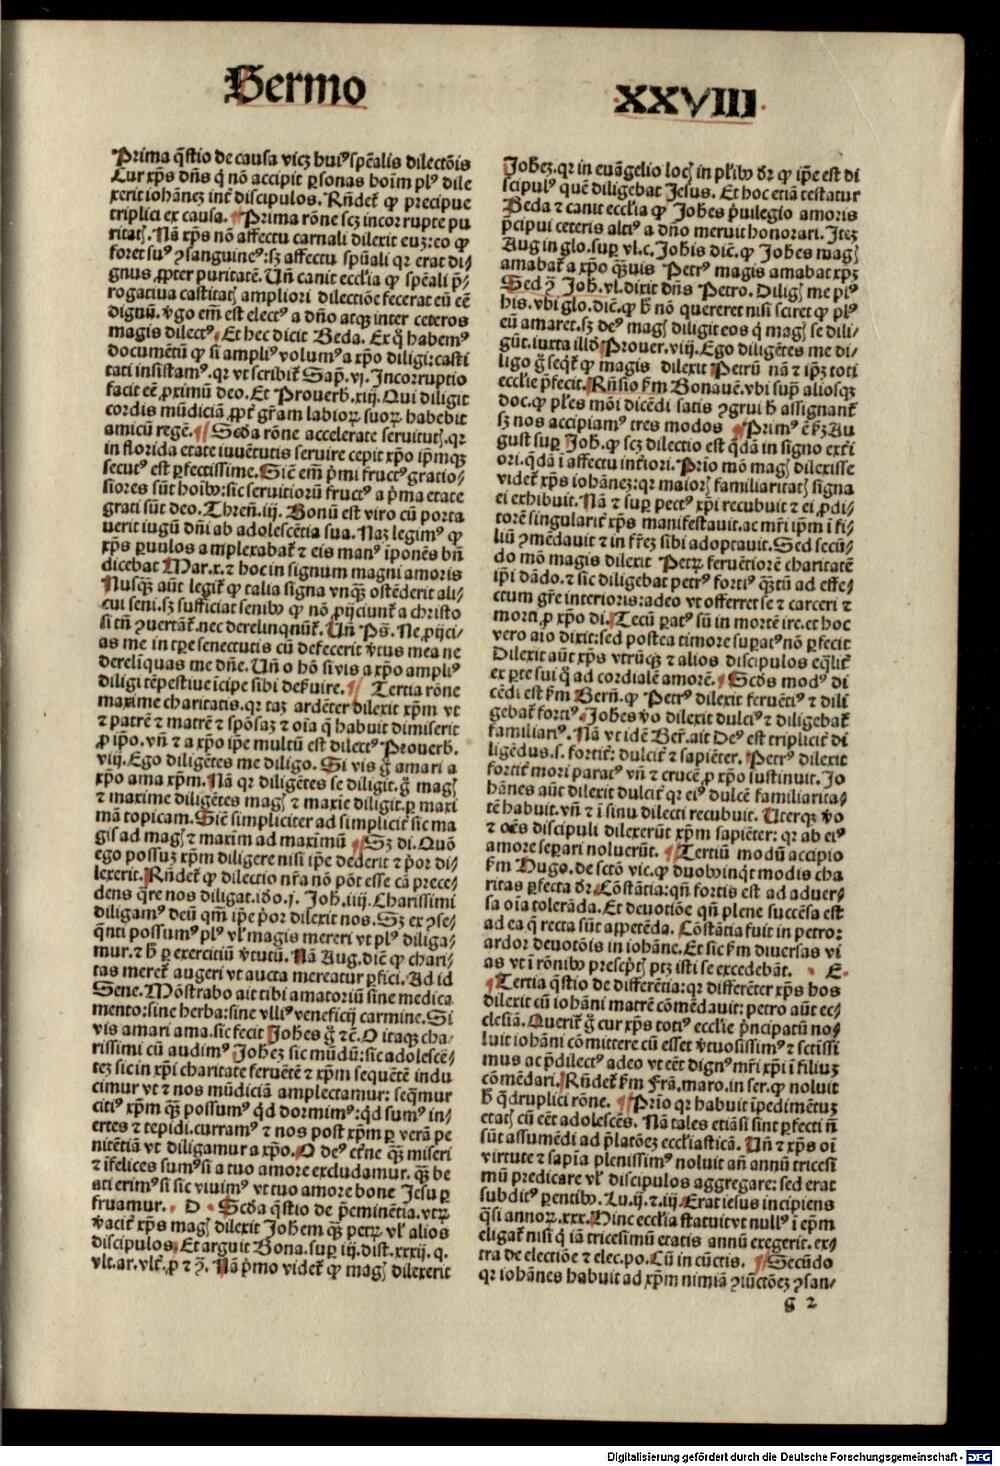 Sermo
XXVIII
Prima q̄stio de causa vicꝫ huiꝰ spēalis dilectōis
Cur xp̄s dn̄s q̇ nō accipit ꝑsonas hoīm plꝰ dile
xerit iohānez int̄ discipulos. Rn̄det̄ ꝙ precipue
triplici ex causa. Prima rōne scꝫ incorrupte pu
ritatꝭ. Nā xp̄s nō affectu carnali dilexit euꝫ: eo ꝙ
foret suꝰ ꝯsanguineꝰ: sꝫ affectu spūali qꝛ erat di⸗
gnus ꝓpter puritatē. Un̄ canit eccl̄ia ꝙ spēali p̄⸗
rogatiua castitatꝭ ampliori dilectiōe fecerat eū eē
dignū. v̇go em̄ est electꝰ a dn̄o atqꝫ inter ceteros
magis dilectꝰ. Et hec dicit Beda. Ex q̇ habemꝰ
documētū ꝙ si ampliꝰ volumꝰ a xp̄o diligi: casti
tati insistamꝰ. qꝛ vt scribit̄ Sap̄. vj. Incorruptio
facit eē ꝓximū deo. Et Prouerb̄. xiij. Qui diligit
cordis mūdiciā ꝓpt̄ gr̄am labioꝝ suoꝝ habebit
amicū regē. Scd̄a rōne accelerate seruitutꝭ. qꝛ
in florida etate iuuētutis seruire cepit xp̄o ip̄mqꝫ
secutꝰ est ꝑfectissime. Sic̄ em̄ p̄mi fructꝰ gratio⸗
siores sūt hoībꝰ: sic seruitiorū fructꝰ a p̄ma etate
grati sūt deo. Thren̄. iij. Bonū est viro cū porta
uerit iugū dn̄i ab adolescētia sua. Naꝫ legimꝰ ꝙ
xp̄s ꝑuulos amplexabat̄ ⁊ eis manꝰ iponēs bn̄
dicebat Mar. x. ⁊ hoc in signum magni amoris
Nusqꝫ aūt legit̄ ꝙ talia signa vnqꝫ ostēderit ali⸗
cui seni. sꝫ sufficiat senibꝰ ꝙ nō ꝓijciunt̄ a christo
si tn̄ ꝯuertāt̄. nec derelinqnūt̄. Un̄ Ps̄. Ne ꝓijci⸗
as me in tp̄e senectutis cū defecerit v̇tus mea ne
derelīquas me dn̄e. Un̄ o hō si vis a xp̄o ampliꝰ
diligi tēpestiue īcipe sibi de&uire. Tertia rōne
maxime charitatis. qꝛ taꝫ ardēter dilexit xp̄m vt
⁊ patrē ⁊ matrē ⁊ spōsaꝫ ⁊ oīa q̄ habuit dimiserit
ꝓ ip̄o. vn̄ ⁊ a xp̄o ip̄e multū est dilectꝰ Prouerb̄.
viij. Ego diligētes me diligo. Si vis g̊ amari a
xp̄o ama xp̄m. Nā qꝛ diligētes se diligit. g̊ magꝭ
⁊ maxime diligētes magꝭ ⁊ maxīe diligit. ꝑ maxi
mā topicam. Sic̄ simpliciter ad simplicit̄ sic ma
gis ad magꝭ ⁊ maxim̄ ad maximū Sꝫ di. Quō
ego possuꝫ xp̄m diligere nisi ip̄e dederit ⁊ p̄or di⸗
lexerit. Rn̄det̄ ꝙ dilectio nr̄a nō pōt esse cā prece⸗
dens q̄re nos diligat. iō. j. Joh̄. iiij. Charissimi
diligamꝰ deū qm̄ ip̄e p̄or dilexit nos. Sꝫ ex ꝯse⸗
q̄nti possumꝰ plꝰ vl̄ magis mereri vt plꝰ diliga⸗
mur. ⁊ h̄ ꝑ exercitiū v̇tutū. Nā Aug. dic̄ ꝙ chari⸗
tas meret̄ augeri vt aucta mereatur ꝑfici. Ad id
Sene. Mōstrabo ait tibi amatoriū sine medica
mento: sine herba: sine vlliꝰ veneficij carmine. Si
vis amari ama. sic fecit Johēs g̊ ⁊c̄. O itaqꝫ cha⸗
rissimi cū audimꝰ Johēꝫ sic mūdū: sic adolescē⸗
tēꝫ sic in xp̄i charitate feruētē ⁊ xp̄m sequētē indu
cimur vt ⁊ nos mūdiciā amplectamur: seq̄mur
citiꝰ xp̄m qꝫ possumꝰ q̇d dormimꝰ: q̇d sumꝰ in⸗
ertes ⁊ tepidi. curramꝰ ⁊ nos post xp̄m ꝑ verā pe
nitētiā vt diligamur a xp̄o. O deꝰ etn̄e qꝫ miseri
⁊ īfelices sumꝰ si a tuo amore excludamur. qꝫ be
ati erimꝰ si sic viuimꝰ vt tuo amore bone Jesu ꝑ
fruamur. D Scd̄a q̄stio de p̄eminētia. vtꝝ
v̇acit̄ xp̄s magꝭ dilexit Johem qꝫ petrꝝ vl̄ alios
discipulos. Et arguit Bona. suꝑ iij. dist. xxxij. q.
vlt. ar. vlt̄. ꝓ ⁊ ꝯ. Nā p̄mo videt̄ ꝙ magꝭ dilexerit
Johēꝫ. qꝛ in euāgelio locꝭ in plibꝰ dr̄ ꝙ ip̄e est di
scipulꝰ quē diligebat Jesus. Et hoc etiā testatur
Beda ⁊ canit eccl̄ia ꝙ Johēs p̄uilegio amoris
p̄cipui ceteris altiꝰ a dn̄o meruit honorari. Iteꝫ
Aug in glo. suꝑ vl. c. Johīs dic̄. ꝙ Johēs magꝭ
amabat̄ a xp̄o qꝫuis Petrꝰ magis amabat xp̄ꝫ
Sed ꝯ Joh̄. vl. dixit dn̄s Petro. Diligꝭ me plꝰ
his. vbi glo. dic̄. ꝙ h̄ nō quereret nisi sciret ꝙ plꝰ
eū amaret. sꝫ deꝰ magꝭ diligit eos q̇ magꝭ se dili⸗
gūt. iuxta illō Prouer. viij. Ego diligētes me di⸗
ligo g̊ seq̇t̄ ꝙ magis dilexit Petrū nā ⁊ ip̄ꝫ toti
eccl̄ie p̄fecit. Rn̄sio ẜm Bonauē. vbi supͣ aliosqꝫ
doc. ꝙ pl̄es mōi dicēdi satis ꝯgrui h̄ assignant̄
sꝫ nos accipiamꝰ tres modos Primꝰ ē ẜꝫ Au
gust suꝑ Joh̄. ꝙ scꝫ dilectio est q̄dā in signo ext̄i
ori. q̄dā ī affectu int̄iori. Prīo mō magꝭ dilexisse
videt̄ xp̄s iohānez: qꝛ maiorꝭ familiaritatꝭ signa
ei exhibuit. Nā ⁊ suꝑ pectꝰ xp̄i recubuit ⁊ ei ꝓdi⸗
torē singularit̄ xp̄s manifestauit. ac mr̄i ip̄m ī fi⸗
liū ꝯmēdauit ⁊ in fr̄eꝫ sibi adoptauit. Sed secū⸗
do mō magis dilexit Petrꝝ feruētiorē charitatē
ip̄i dādo. ⁊ sic diligebat petrꝰ fortiꝰ qꝫtū ad effe⸗
ctum gr̄e interioris: adeo vt offerret se ⁊ carceri ⁊
morti ꝓ xp̄o di. Tecū ꝑatꝰ sū in mortē ire. et hoc
vero aīo dixit: sed postea timore suꝑatꝰ nō ꝑfecit
Dilexit aūt xp̄s vtrūqꝫ ⁊ alios discipulos eq̄lit̄
ex ꝑte sui q̊ ad cordialē amorē. Scd̄s modꝰ di
cēdi est ẜm Bern̄. ꝙ Petrꝰ dilexit feruētiꝰ ⁊ dili
gebat̄ fortiꝰ. Johēs v̊o dilexit dulciꝰ ⁊ diligebat̄
familiariꝰ. Nā vt idē Ber̄. ait Deꝰ est triplicit̄ di
ligēdus. s. fortit̄: dulcit̄ ⁊ sapiēter. Petrꝰ dilexit
fortit̄ mori paratꝰ vn̄ ⁊ crucē ꝓ xp̄o sustinuit. Jo
hānes aūt dilexit dulcit̄ qꝛ eiꝰ dulcē familiarita⸗
tē habuit. vn̄ ⁊ ī sinu dilecti recubuit. Uterqꝫ v̊o
⁊ oēs discipuli dilexerūt xp̄m sapiēter: qꝛ ab eiꝰ
amore separi noluerūt. Tertiū modū accipio
ẜm Hugo. de sctō vic. ꝙ duobꝰ inq̇t modis cha
ritas ꝑfecta dr̄. Cōstātia: qn̄ fortis est ad aduer⸗
sa oīa tolerāda. Et deuotiōe qn̄ plene succēsa est
ad ea q̄ recta sūt appetēda. Cōstātia fuit in petro:
ardor deuotōis in iohāne. Et sic ẜm diuersas vi
as vt ī rōnibꝰ prescp̄tꝭ ptꝫ isti se excedebāt. E
Tertia q̄stio de differētia: qꝛ differēter xp̄s hos
dilexit cū iohāni matrē cōmēdauit: petro aūt ec⸗
clesiā. Querit̄ g̊ cur xp̄s totiꝰ eccl̄ie p̄ncipatū no⸗
luit iohāni cōmittere cū esset v̇tuosissimꝰ ⁊ sctīssi
mus ac p̄dilectꝰ adeo vt eēt dignꝰ mr̄i xp̄i ī filiuꝫ
cōmēdari. Rn̄det̄ ẜm Frā. maro. in ser. ꝙ noluit
h̄ q̇druplici rōne. Prīo qꝛ habuit īpedimētuꝫ
etatꝭ cū eēt adolescēs. Nā tales etiāsi sint ꝑfecti n̄
sūt assumēdi ad p̄latōeꝫ eccl̄iasticā. Un̄ ⁊ xp̄s oī
virtute ⁊ sapīa plenissimꝰ noluit an̄ annū tricesi
mū predicare vl̄ discipulos aggregare: sed erat
subditꝰ ꝑentibꝰ. Lu. ij. ⁊ iij. Erat iesus incipiens
q̄si annoꝝ. xxx. Hinc eccl̄ia statuit vt nullꝰ ī ep̄m
eligat̄ nisi q̇ iā tricesimū etatis annū exegerit. ex⸗
tra de electiōe ⁊ elec. po. Cū in cūctis. Secūdo
qꝛ iohānes habuit ad xp̄m nimiā ꝯiūctōeꝫ ꝯsan⸗
g 2
Digitalisierung gefördert durch die Deutsche Forschungsgemeinschaft - DFG